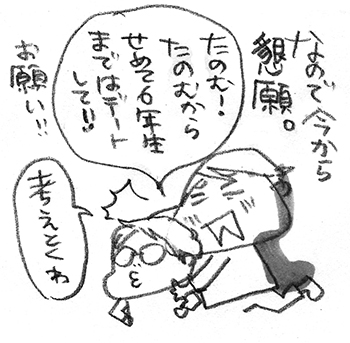 なので今から
懇願。
たのむ！
たのむから
せめて6年生
まではデート
して！！
お願い！！
考えとくわ